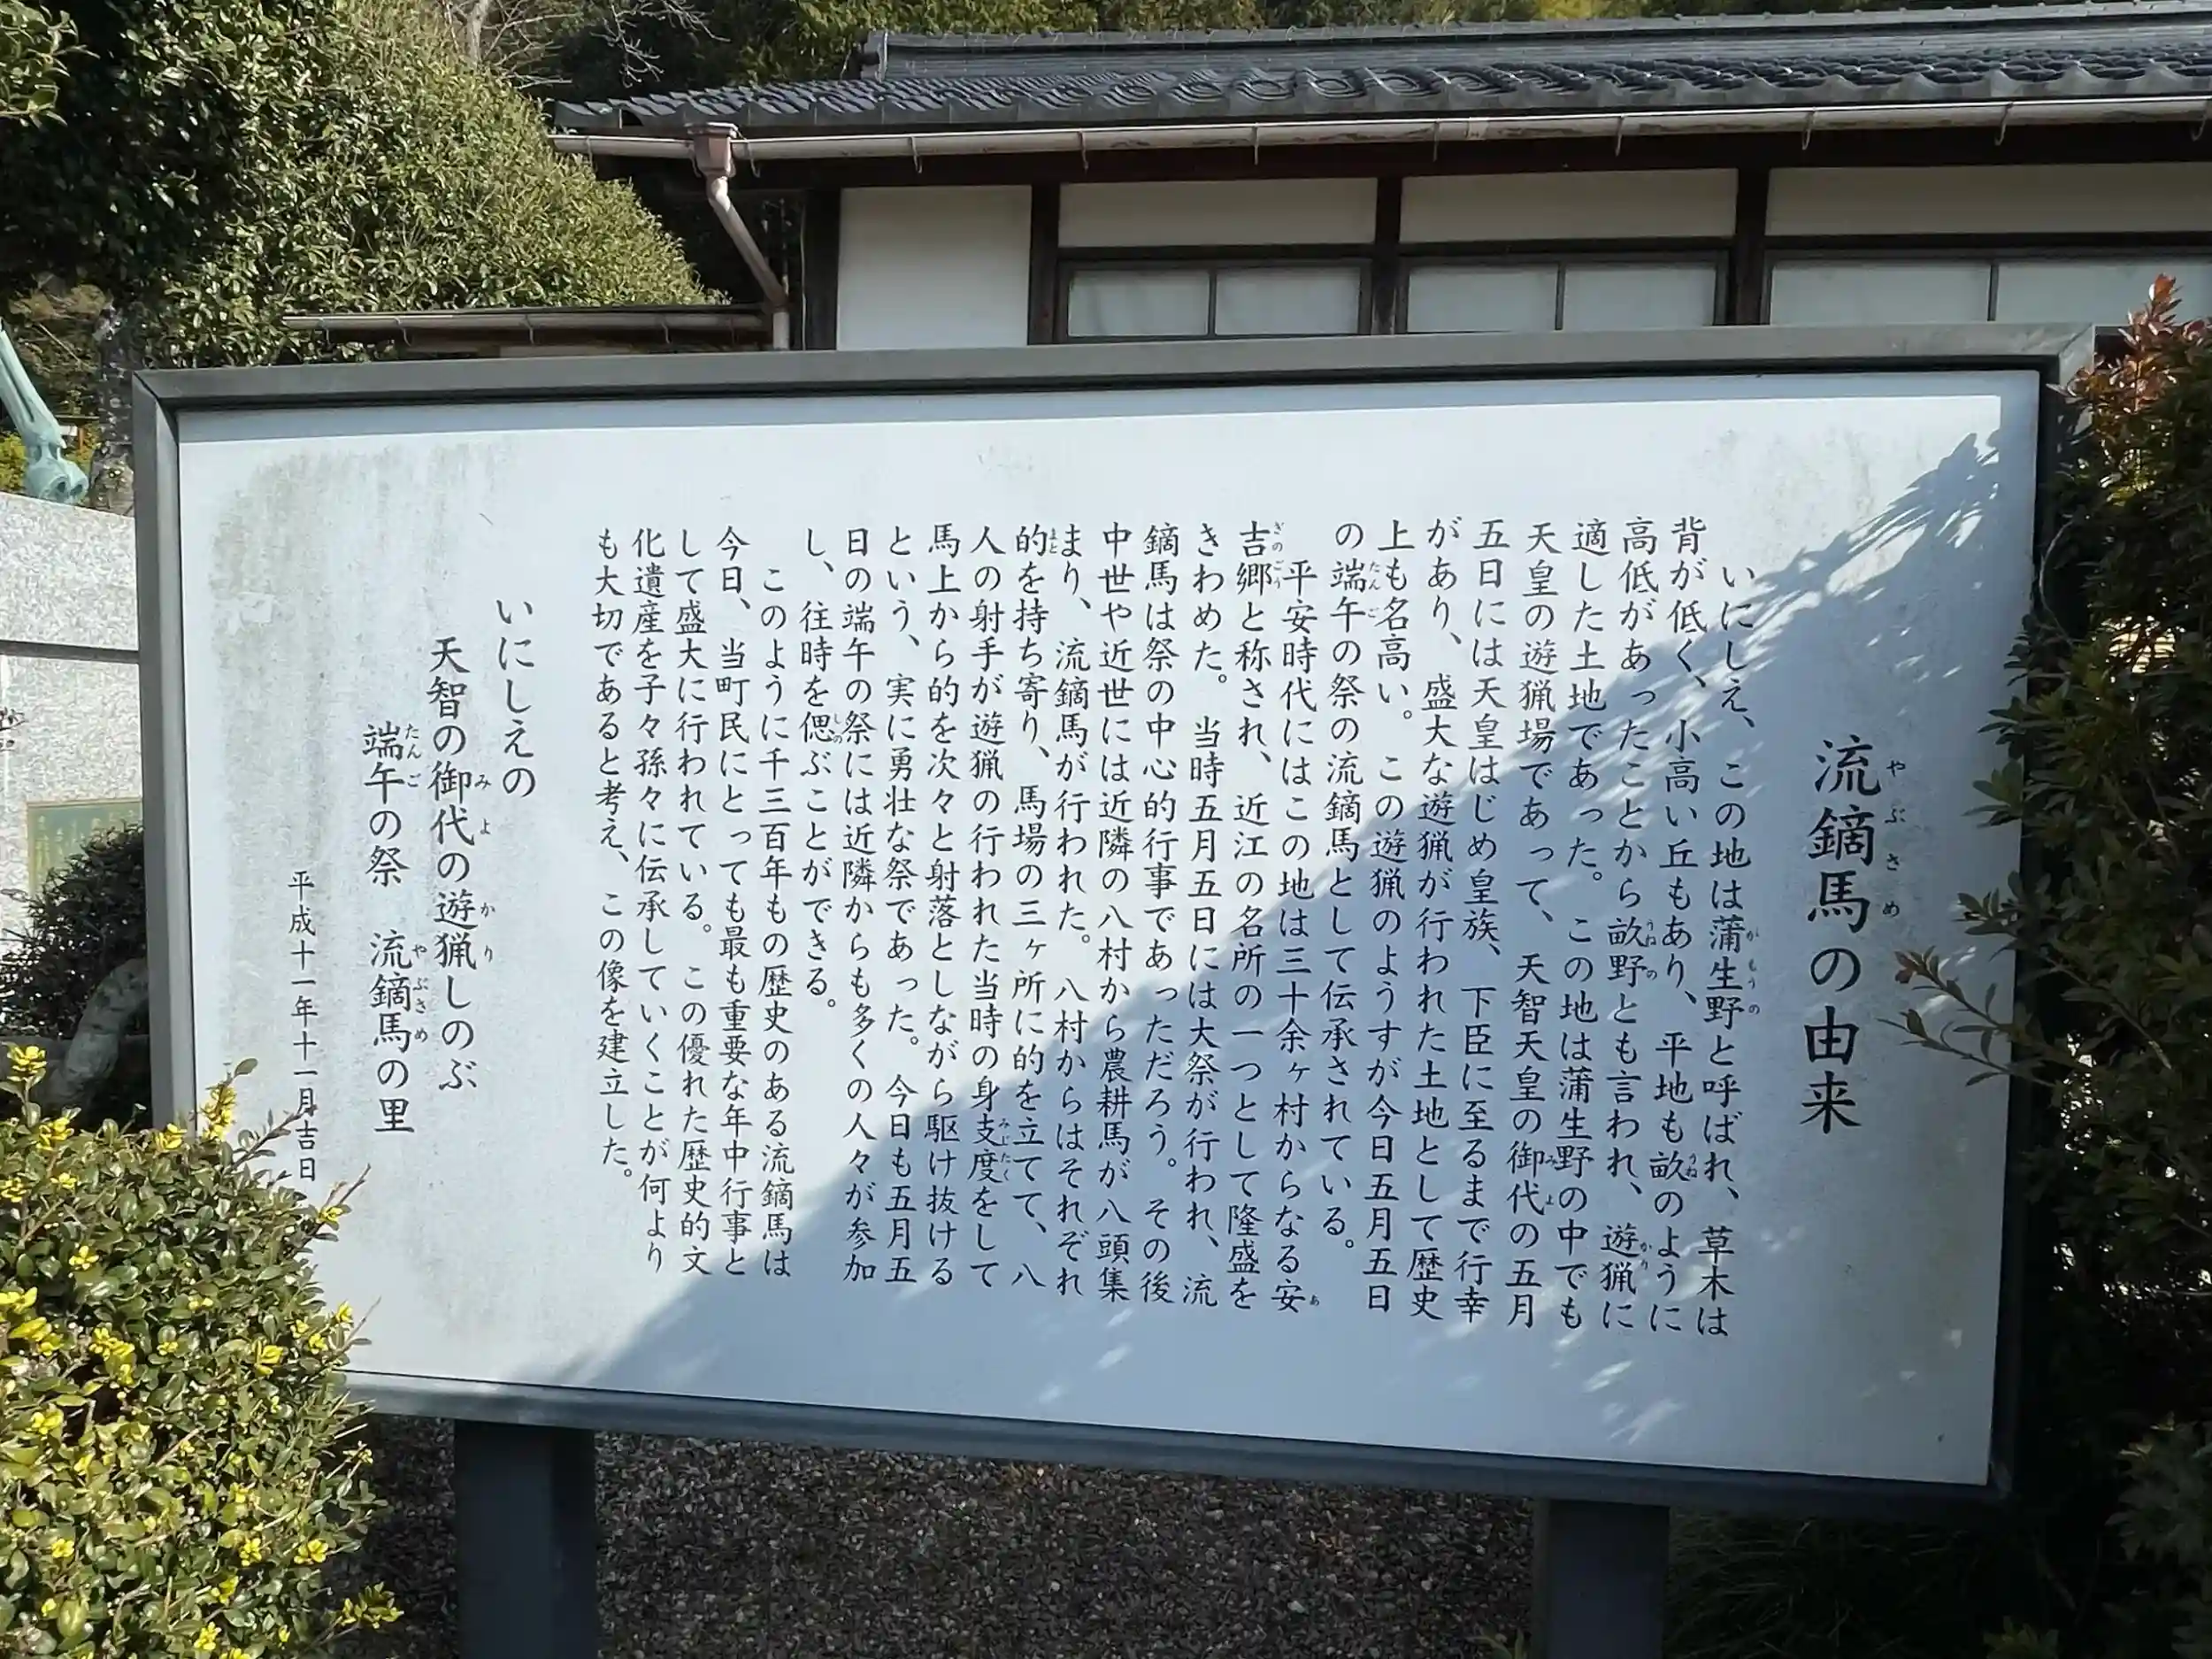 流鏑馬の由来
いにしえ、この地は蒲生野と呼ばれ、草木は
背が低く、小高い丘もあり、平地も畝のように
高低があったことから畝野とも言われ、遊猟に
適した土地であった。この地は蒲生野の中でも
天皇の遊猟場であって、天智天皇の御代の五月
五日には天皇はじめ皇族、下臣に至るまで行幸
があり、盛大な遊猟が行われた土地として歴史
上も名高い。この遊猟のようすが今日五月五日
の端午の祭の流鏑馬として伝承されている。
平安時代にはこの地は三十余ヶ村からなる安
吉郷と称され、近江の名所の一つとして隆盛を
きわめた。当時五月五日には大祭が行われ、流
鏑馬は祭の中心的行事であっただろう。その後
中世や近世には近隣の八村から農耕馬が八頭集
まり、流鏑馬が行われた。八村からはそれぞれ
的を持ち寄り、馬場の三ヶ所に的を立てて、八
人の射手が遊猟の行われた当時の身支度をして
馬上から的を次々と射落としながら駆け抜ける
という、実に勇壮な祭であった。今日も五月五
日の端午の祭には近隣からも多くの人々が参加
し、往時を偲ぶことができる。
このように千三百年もの歴史のある流鏑馬は
今日、当町民にとっても最も重要な年中行事と
して盛大に行われている。この優れた歴史的文
化遺産を子々孫々に伝承していくことが何より
も大切であると考え、この像を建立した。
いにしえの
天智の御代の遊猟しのぶ
端午の祭　流鏑馬の里
平成十一年十一月吉日